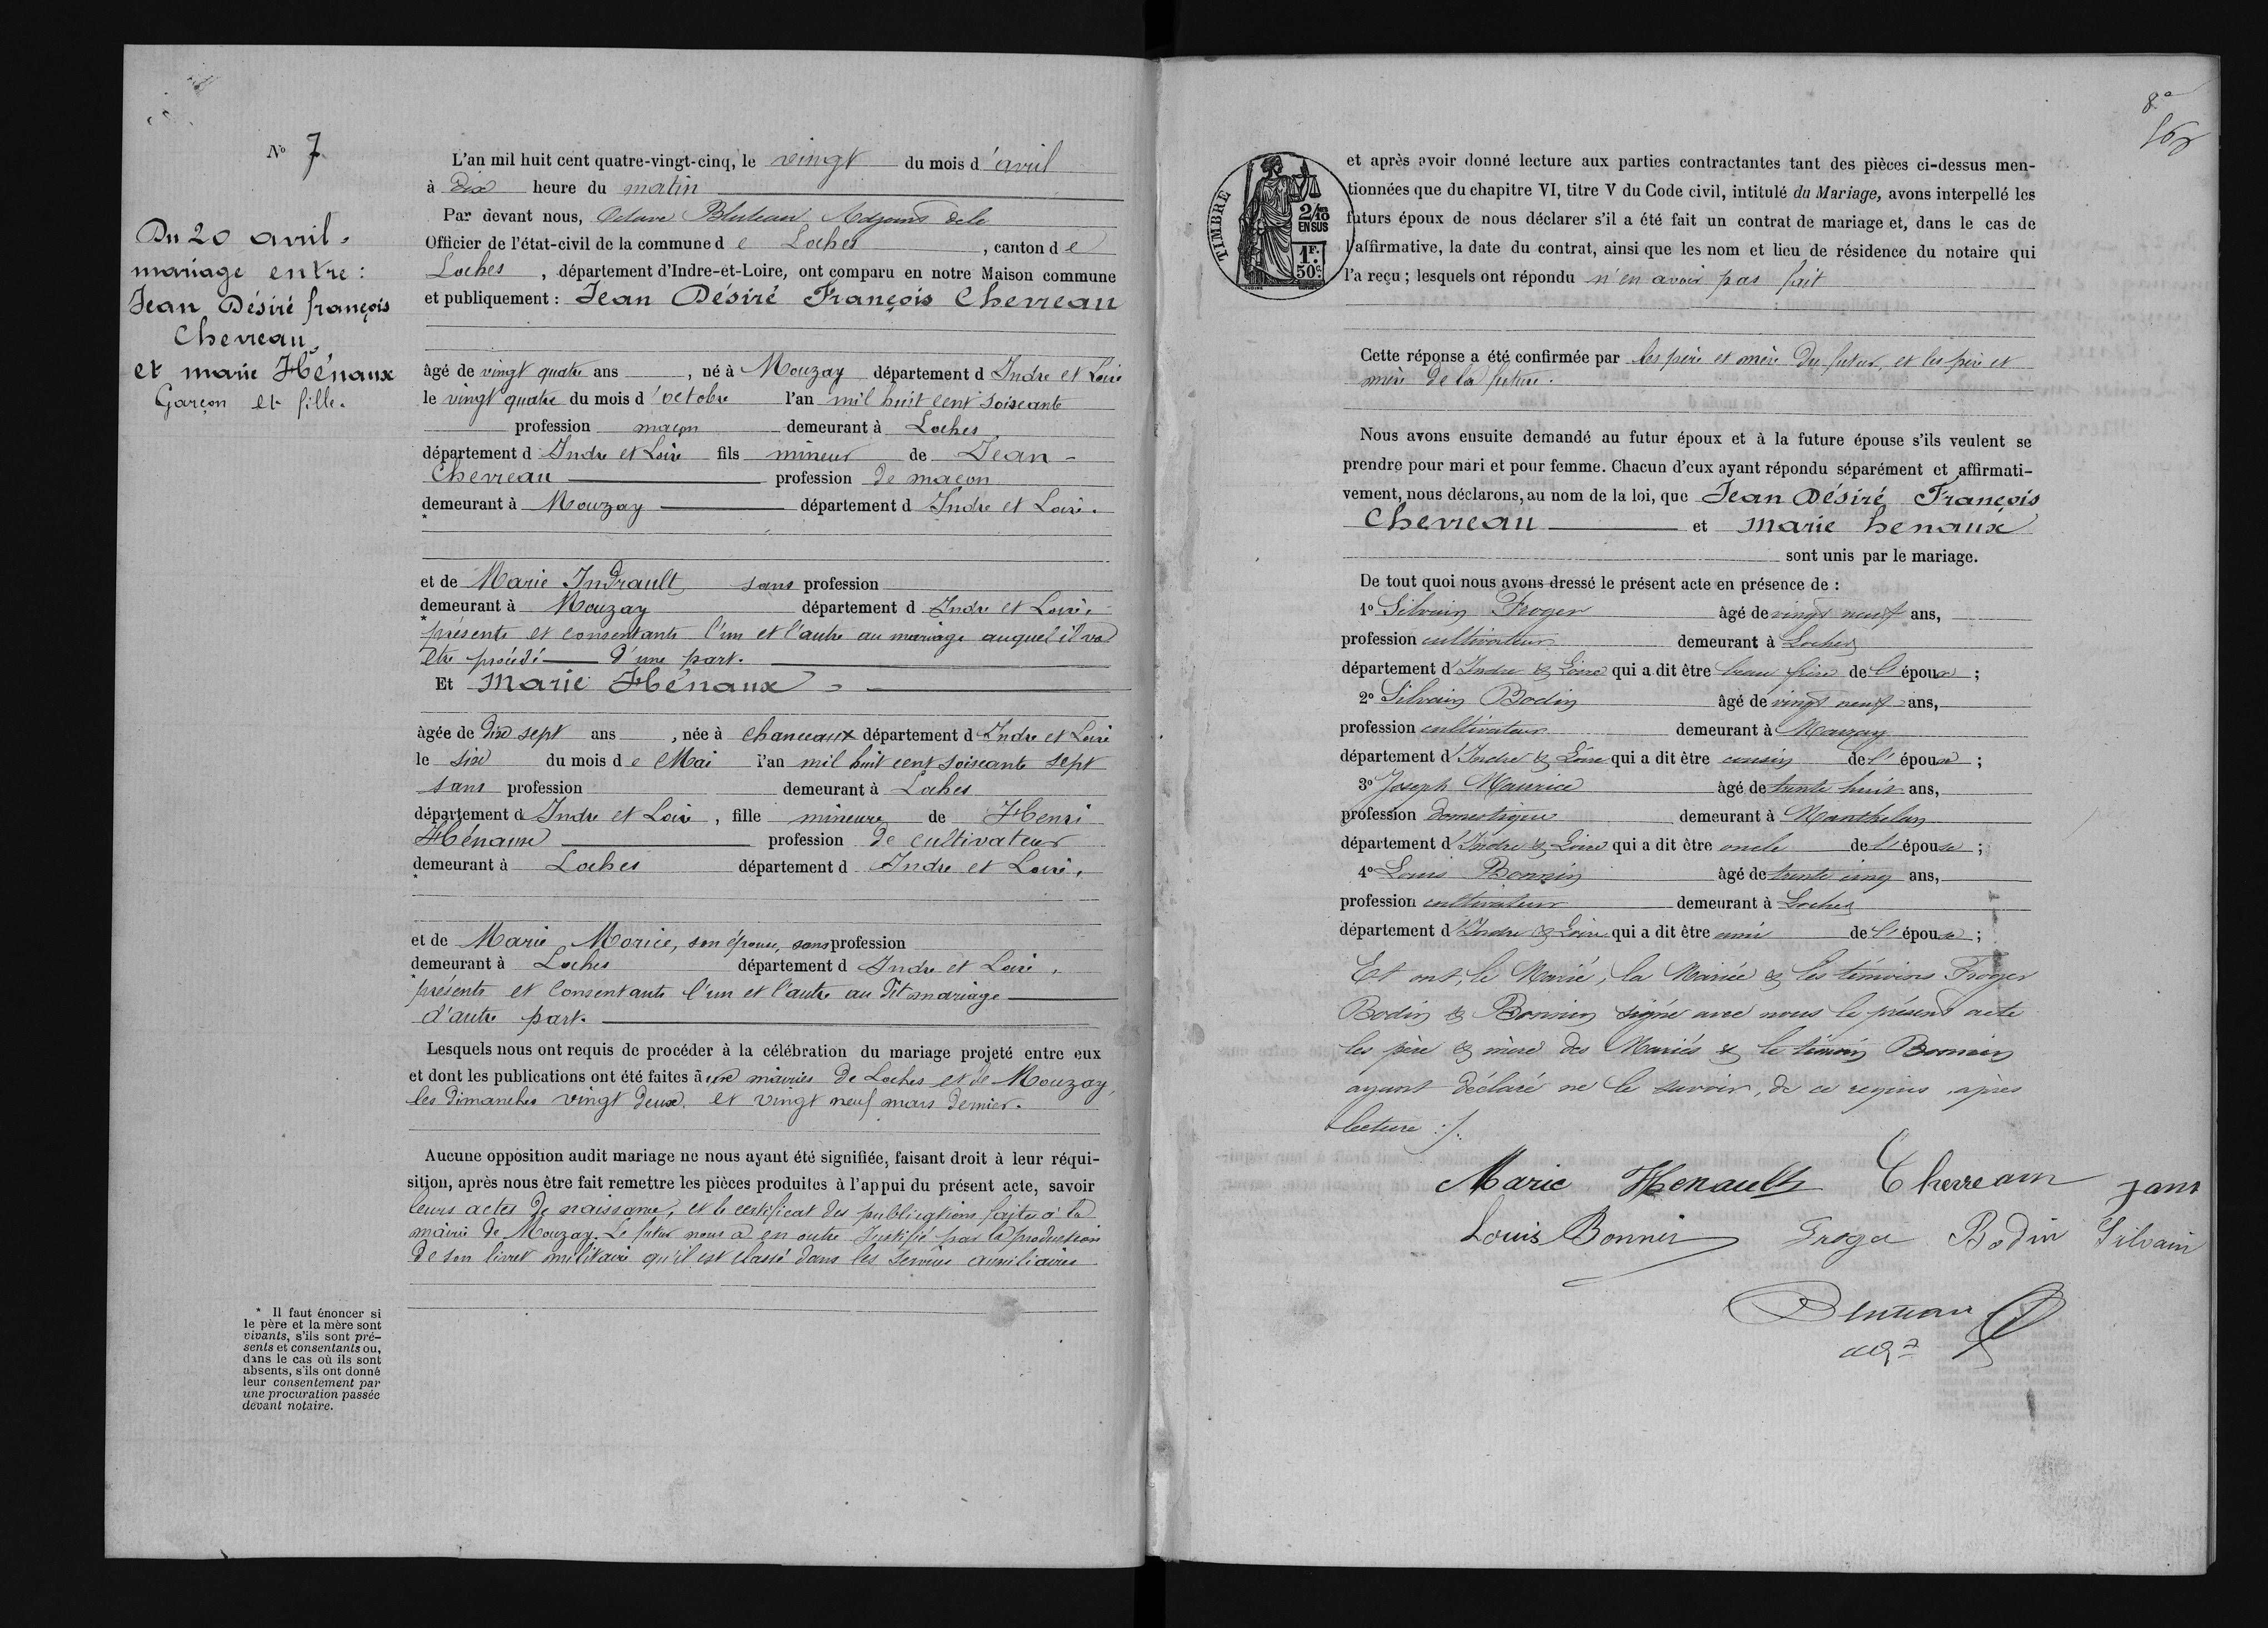 N° 7
Du 20 avril.
mariage entre :
Jean Désiré françois
Chevreau,
et marie Hénaux
Garçon et fille.
L'an mil huit cent quatre-vingt-cinq, le vingt du mois d'avril
à dix heure du matin
Par devant nous, Octave Bluteau Adjoint délé
Officier de l'état-civil de la commune de Loches, canton de
Loches, département d'Indre-et-Loire, ont comparu en notre Maison commune
et publiquement : Jean Désiré François Chevreau
âgé de vingt quatre ans, né à Mouzay département d Indre et Loire
le vingt quatre du mois d'octobre l'an mil huit cent soixante
profession maçon demeurant à Loches
département d Indre et Loire fils mineur de Jean
Chevreau profession de maçon
demeurant à Mouzay département d Indre et Loire.
*
et de Marie Indrault sans profession
demeurant à Mouzay département d Indre et Loire,
* présents et consentants l'un et l'autre au mariage auquel il va
être procédé d'une part.
Et Marie Hénaux
âgée de dix sept ans, née à chanceaux département d Indre et Loire
le six du mois de Mai l'an mil huit cent soixante sept
sans profession demeurant à Loches
département d Indre et Loire, fille mineure de Henri
Hénaux profession de cultivateur
demeurant à Loches département d Indre et Loire,
*
et de Marie Morice, son épouse, sans profession
demeurant à Loches département d Indre et Loire,
* présents et consentants l'un et l'autre au dit mariage
d'autre part.
Lesquels nous ont requis de procéder à la célébration du mariage projeté entre eux
et dont les publications ont été faites aux mairies de Loches et de Mouzay,
les dimanches vingt deux et vingt neuf mars dernier.
Aucune opposition audit mariage ne nous ayant été signifiée, faisant droit à leur réqui-
sition, après nous être fait remettre les pièces produites à l'appui du présent acte, savoir
leurs actes de naissance, et le certificat des publications faites à la
mairie de Mouzay. Le futur nous a en outre Justifié par la production
de son livret militaire qu'il est classé dans les services auxiliaires
* Il faut énoncer si
le père et la mère sont
vivants, s'ils sont pré-
sents et consentants ou,
dans le cas où ils sont
absents, s'ils ont donné
leur consentement par
une procuration passée
devant notaire.
8e
TIMBRE
2/10 EN SUS
1F.
50c.
et après avoir donné lecture aux parties contractantes tant des pièces ci-dessus men-
tionnées que du chapitre VI, titre V du Code civil, intitulé du Mariage, avons interpellé les
futurs époux de nous déclarer s'il a été fait un contrat de mariage et, dans le cas de
l'affirmative, la date du contrat, ainsi que les nom et lieu de résidence du notaire qui
l'a reçu ; lesquels ont répondu n'en avoir pas fait
Cette réponse a été confirmée par les père et mère du futur, et les père et
mère de la future.
Nous avons ensuite demandé au futur époux et à la future épouse s'ils veulent se
prendre pour mari et pour femme. Chacun d'eux ayant répondu séparément et affirmati-
vement, nous déclarons, au nom de la loi, que Jean Désiré François
Chevreau et Marie henaux
sont unis par le mariage.
De tout quoi nous avons dressé le présent acte en présence de :
1° Silvain Froger âgé de vingt neuf ans,
profession cultivateur demeurant à Loches
département d'Indre & Loire qui a dit être beau frère de l'époux ;
2° Silvain Bodin âgé de vingt neuf ans,
profession cultivateur demeurant à Mouzay
département d'Indre & Loire qui a dit être cousin de l'époux ;
3° Joseph Maurice âgé de trente huit ans,
profession domestique demeurant à Manthelan
département d'Indre & Loire qui a dit être oncle de l'épouse ;
4° Louis Bonnin âgé de trente cinq ans,
profession cultivateur demeurant à Loches
département d'Indre & Loire qui a dit être ami de l'épouse ;
Et ont, le Marié, la Mariée & les témoins Froger
Bodin & Bonnin signé avec nous le présent acte
les père & mère des Mariés & le témoin Bonnin
ayant déclaré ne le savoir, de ce requis après
lecture ./.
Marie Henault Chevreau jean
Louis Bonnin Froger Bodin Silvain
Bluteau
adjt